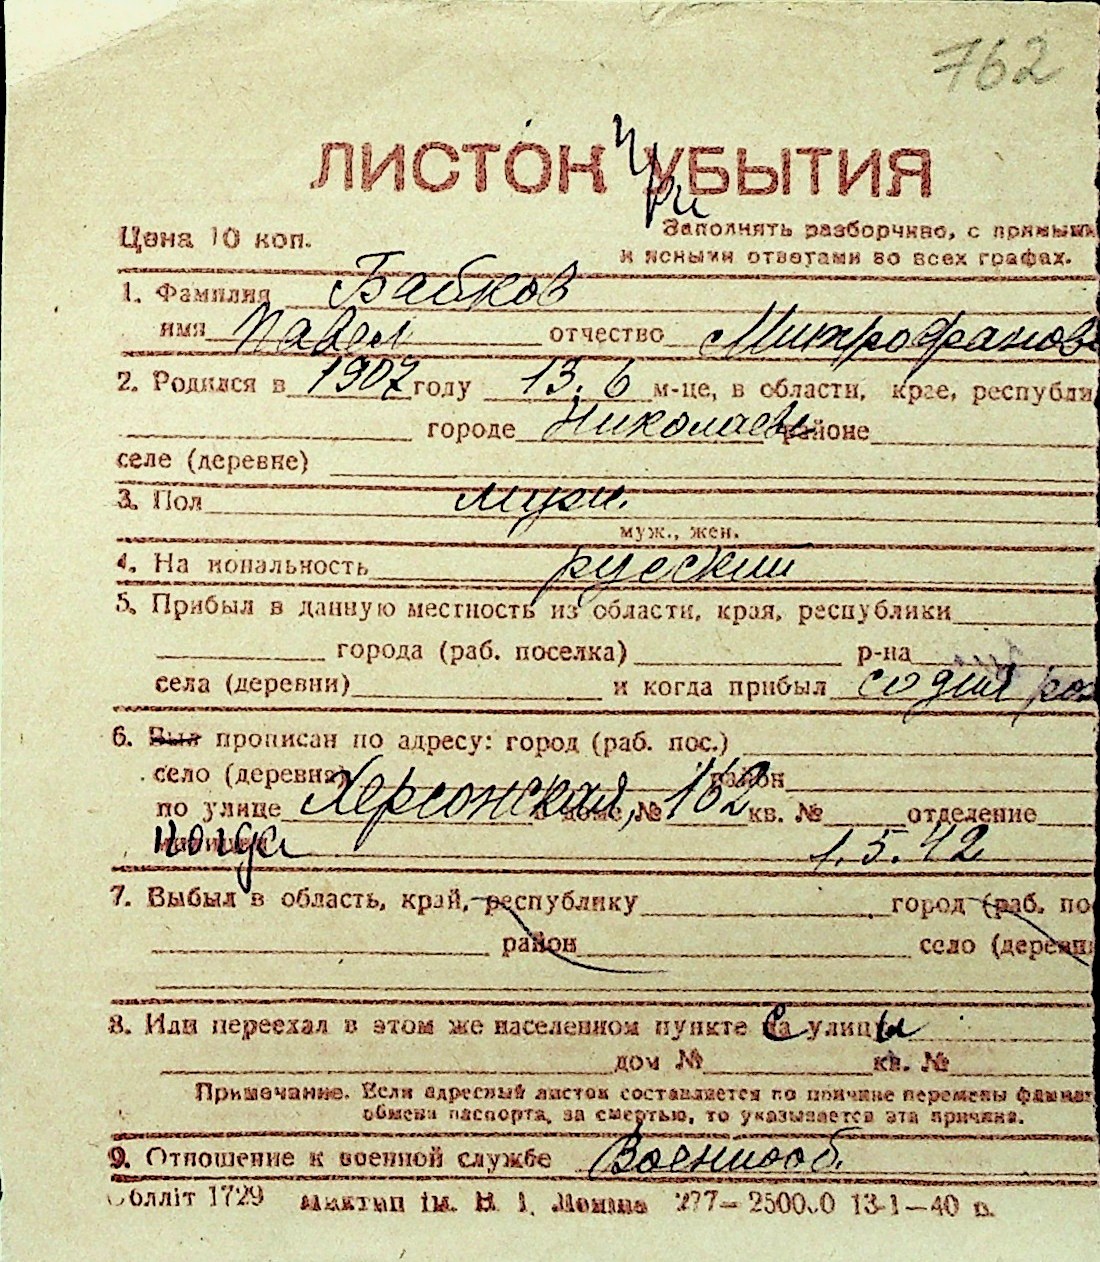 762
ЛИСТОК УБЫТИЯ
при
Цена 10 коп.
Заполнять разборчиво, с прямыми
и ясными ответами во всех графах.
1. Фамилия Бабков
имя Павел отчество Митрофанов
2. Родился в 1907 году 13.6 м-це, в области, крае, республи
городе Николаев районе
селе (деревне)
3. Пол муж.
муж., жен.
4. На иональность русский
5. Прибыл в данную местность из области, края, республики
города (раб. поселка) р-на
села (деревни) и когда прибыл со дня рож
6. Был прописан по адресу: город (раб. пос.)
село (деревна) район
по улице Херсонская, в доме № 162 кв. № отделение
когда 1.5.42
7. Выбыл в область, край, республику город (раб. по
район село (деревн
8. Или переехал в этом же населенном пункте с улицы
дом № кв. №
Примечание. Если адресный листок составляется по причине перемены фамил
обмена паспорта, за смертью, то указывается эта причина.
9. Отношение к военной службе Военнооб.
Облліт 1729 ім. В. І. 277—250000 13-1—40 р.